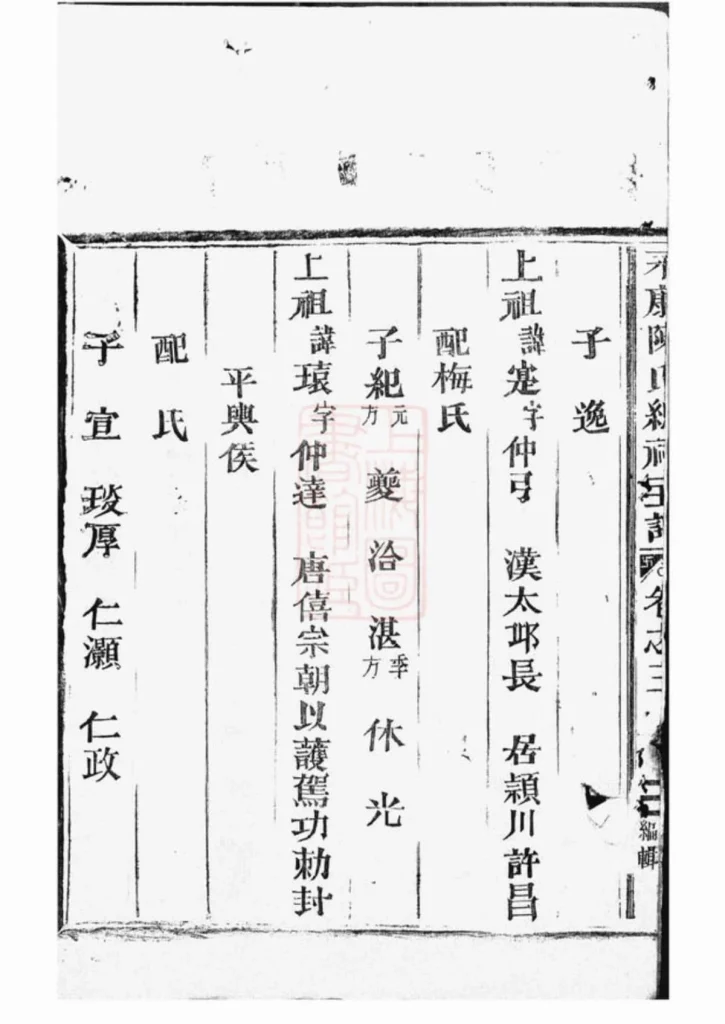 永康陳氏總祠主譜 名志三 編輯
子逸
上祖諱寔字仲弓 漢太邱長 居潁川許昌
配梅氏
子紀元方 夔 洽 湛季方 休 光
上祖諱瑗字仲達 唐僖宗朝以護駕功勅封
平輿侯
配氏
子宣 琰厚 仁灝 仁政
上海圖書館藏